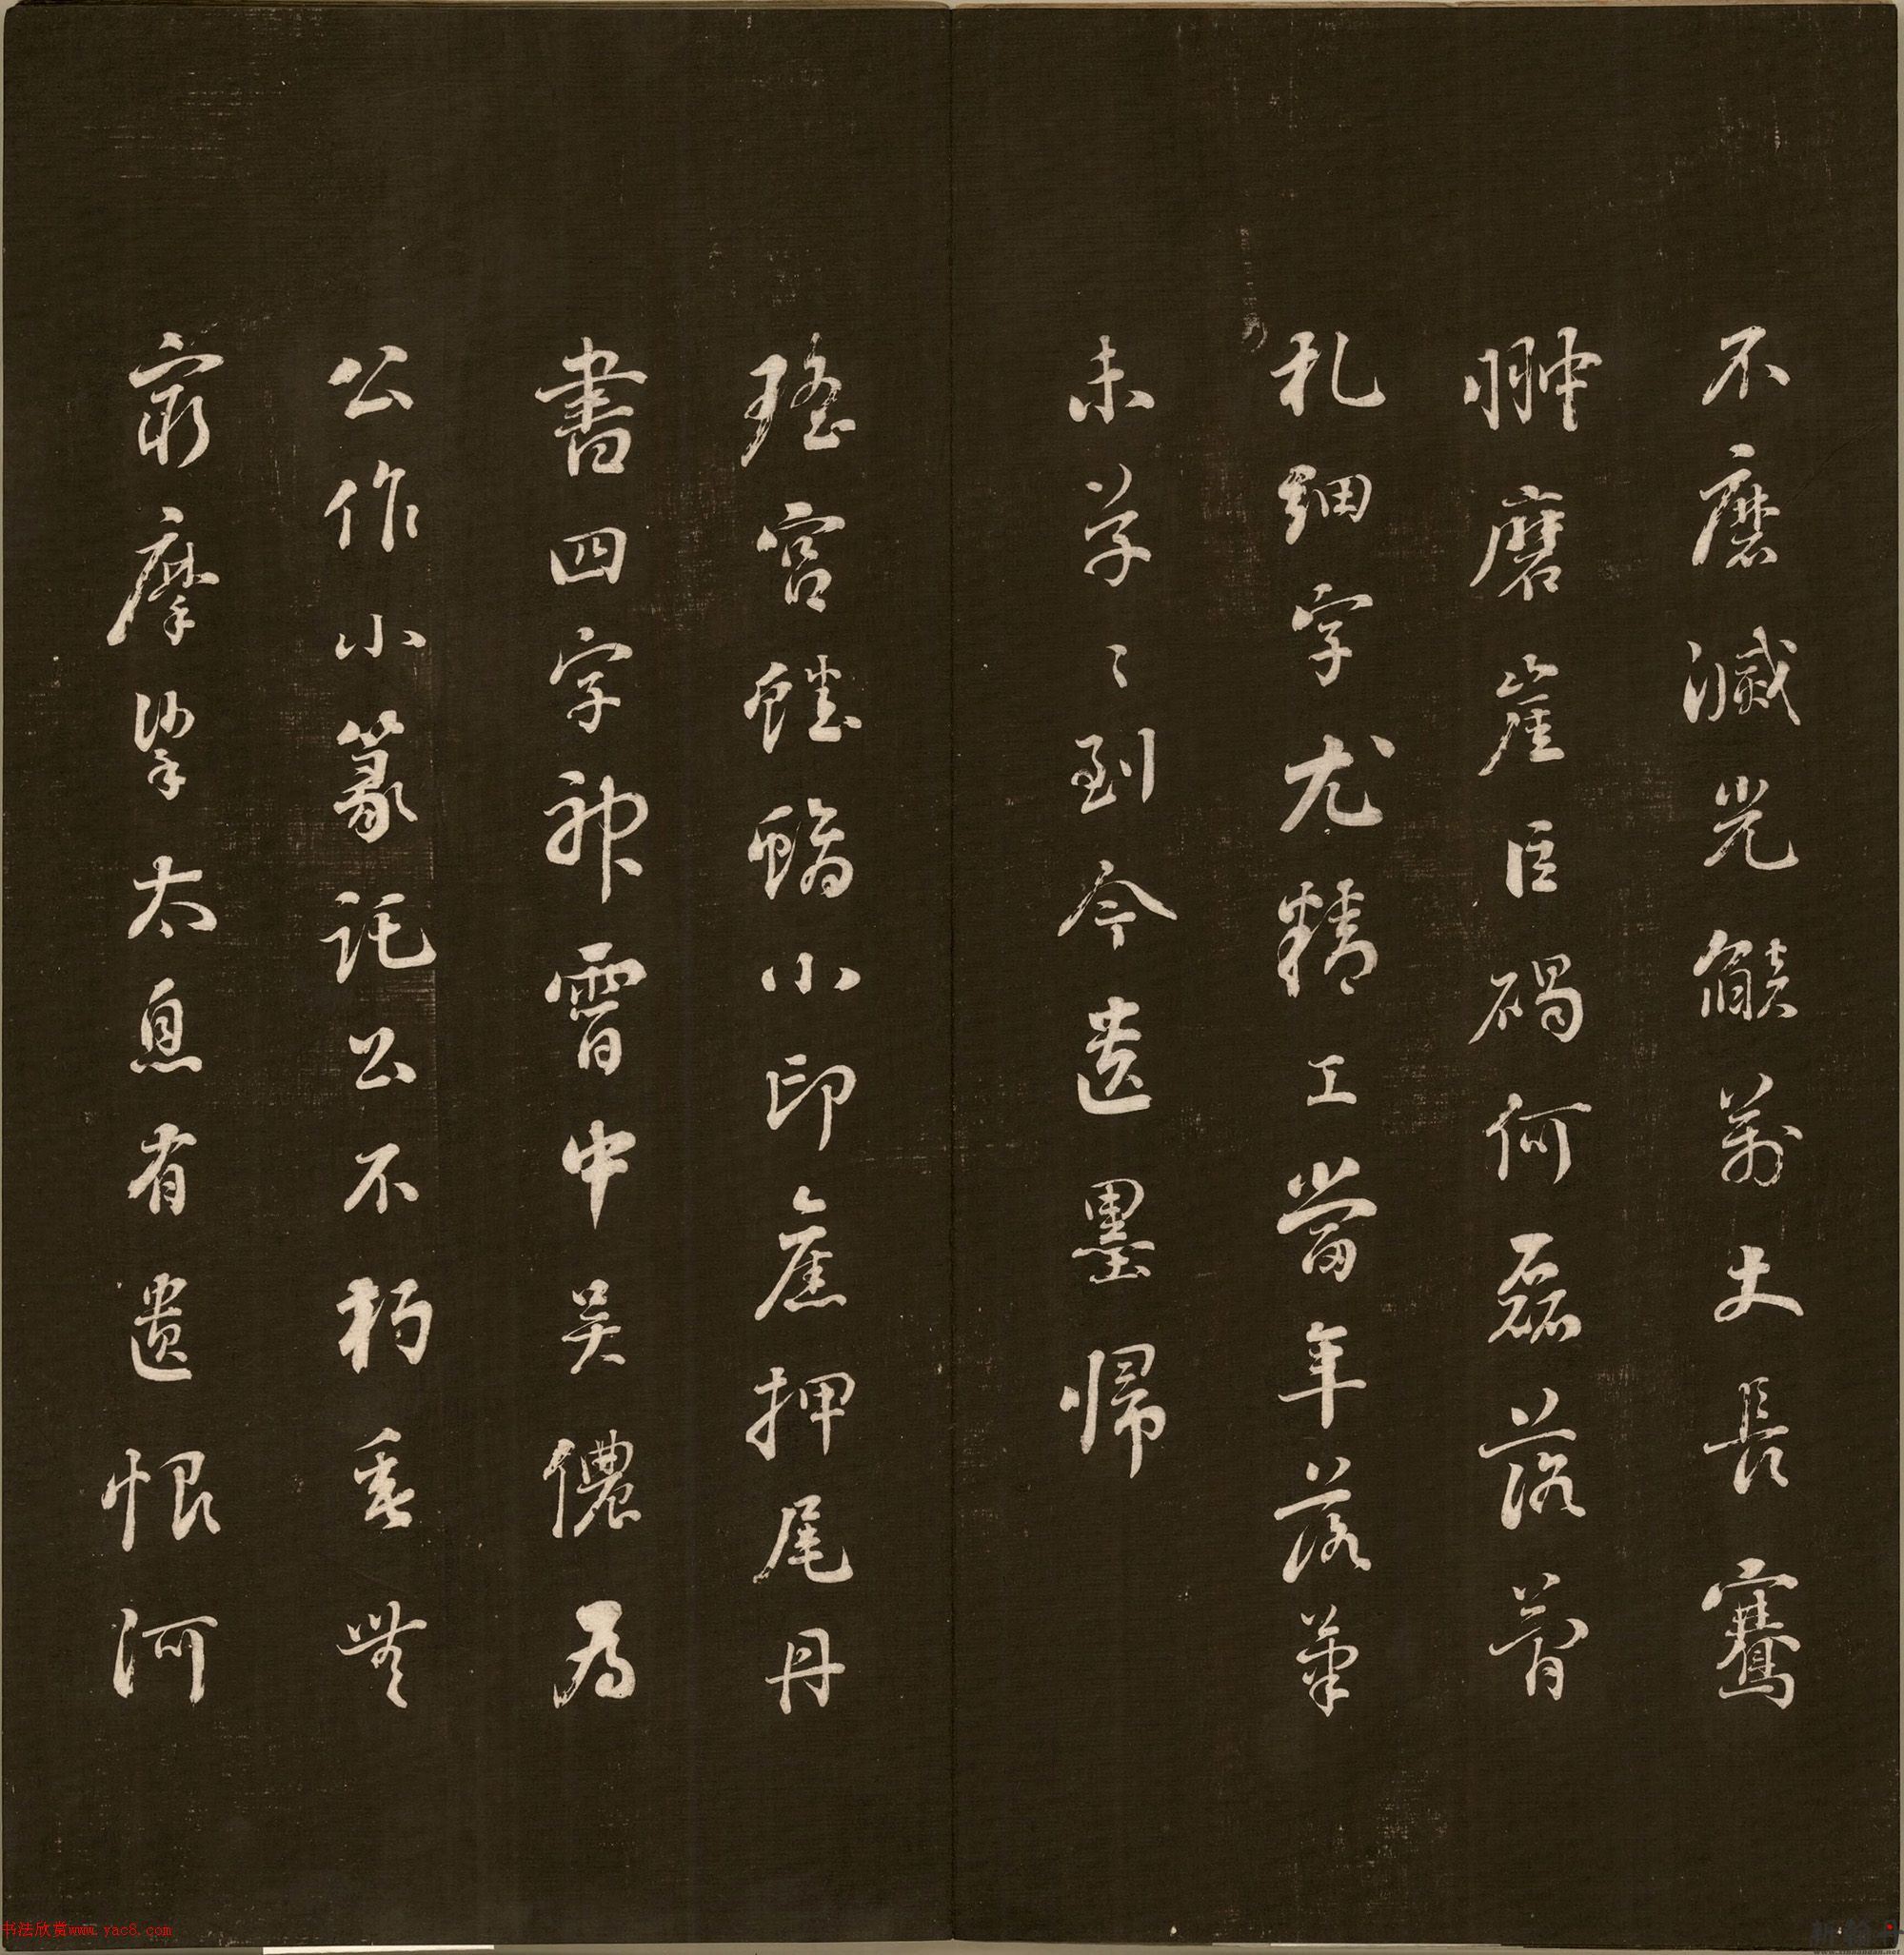 不磨滅光餤萬丈長騫
翀磨崖巨碣何磊落菅
札細字尤精工當年落筆
未草〻到今遺墨歸
瑤宮蟠螭小印舊押尾丹
書四字神霄中吴儂爲
公作小篆託公不朽垂無
窮摩挲太息有遺恨河
书法欣赏www.yac8.com